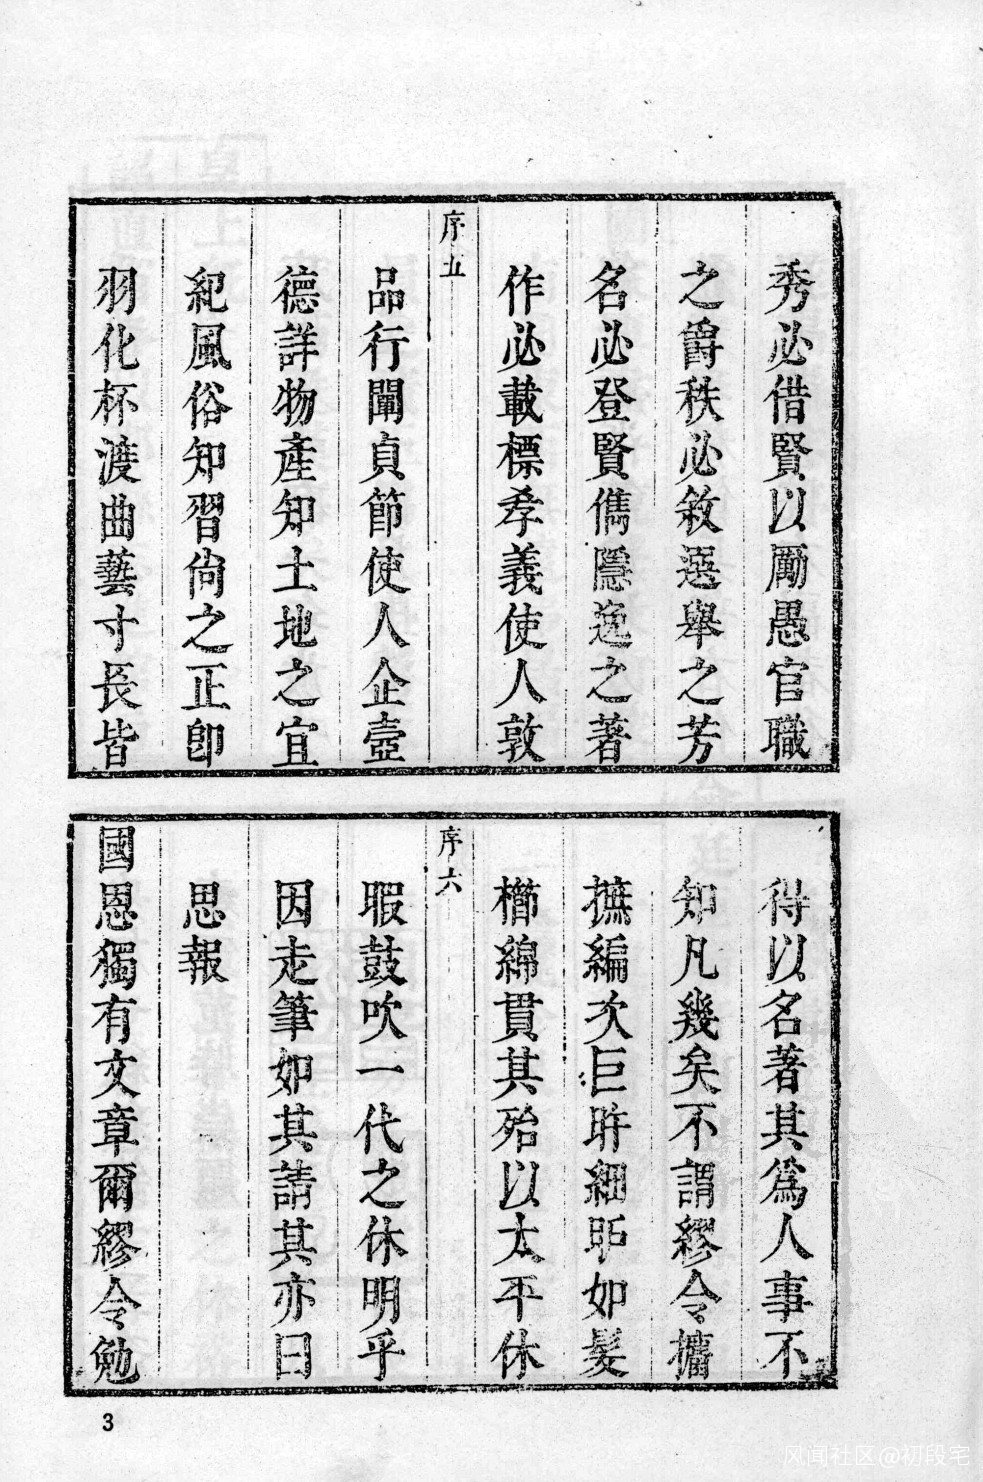 秀必借賢以勵愚官職
之爵秩必敘選舉之芳
名必登賢儁隱逸之著
作必載標孝義使人敦
序五
品行闡貞節使人企壼
德詳物產知土地之宜
紀風俗知習尙之正卽
羽化杯渡曲藝寸長皆
得以名著其爲人事不
知凡幾矣不謂繆令攟
撫編次巨
細
如髮
櫛綿貫其殆以太平休
序六
暇鼓吹一代之休明乎
因走筆如其請其亦曰
思報
國恩獨有文章爾繆令勉
3
风闻社区@初段宅